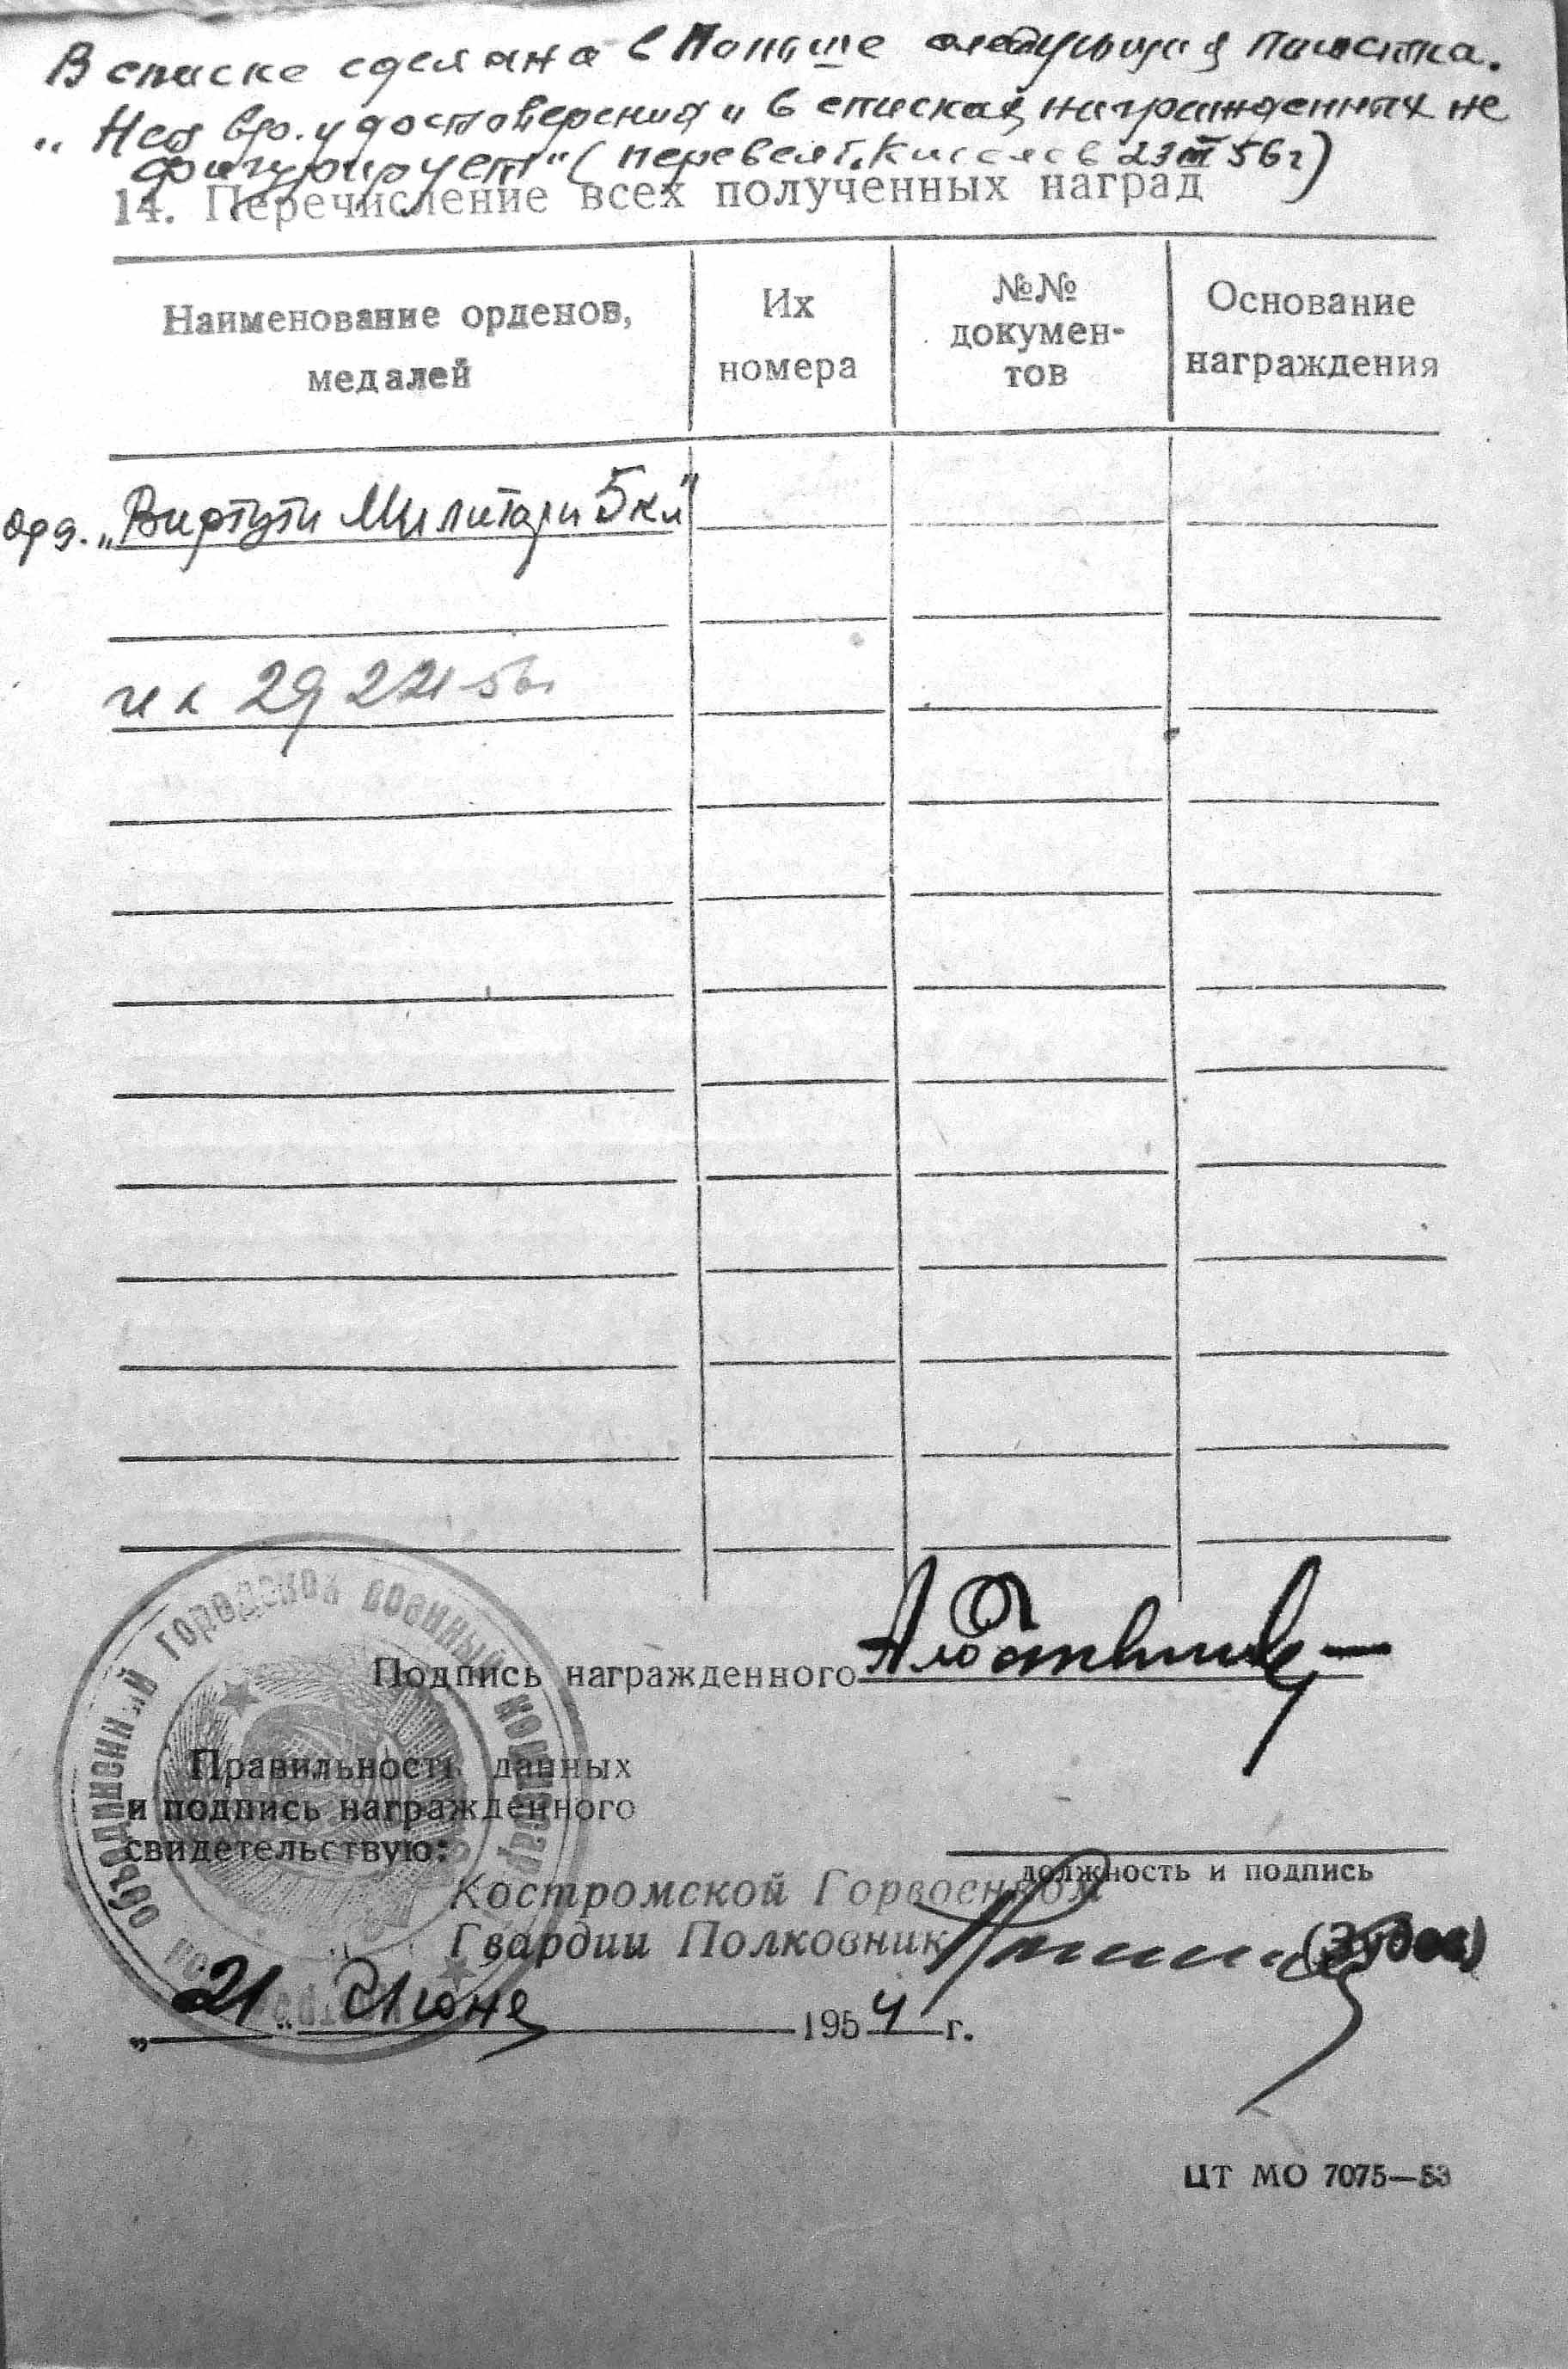 В списке сделана в Польше следующая пометка.
„Нет вр. удостоверения и в списках награжденных не
фигурирует" (перевел т. Киселев 23 III 56 г)
14. Перечисление всех полученных наград
Наименование орденов, медалей
Их номера
№№ докумен-тов
Основание награждения
Орд. „Виртути Милитари 5 кл"
29 221
Подпись награжденного
Правильность данных
и подпись награжденного
свидетельствую:
должность и подпись
Костромской Горвоенком
Гвардии Полковник
„21" Июня 1954 г.
объединенный городской военный комиссар
ЦТ МО 7075—53